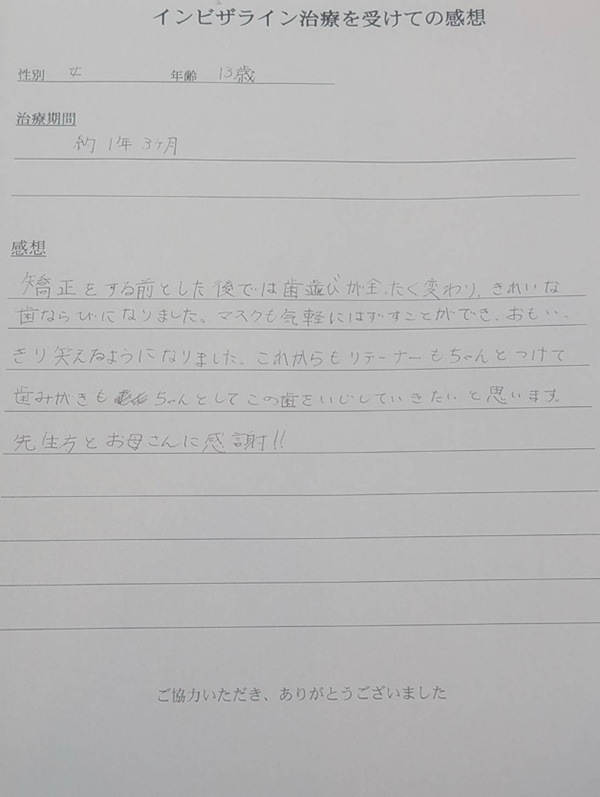 インビザライン治療を受けての感想
性別 女 年齢 13歳
治療期間
約1年3ヶ月
感想
矯正をする前とした後では歯並びが全たく変わり、きれいな
歯ならびになりました。マスクも気軽にはずすことができ、おもいっ
きり笑えるようになりました。これからもリテーナーもちゃんとつけて
歯みがきもちゃんとしてこの歯をいじしていきたいと思います。
先生方とお母さんに感謝!!
ご協力いただき、ありがとうございました